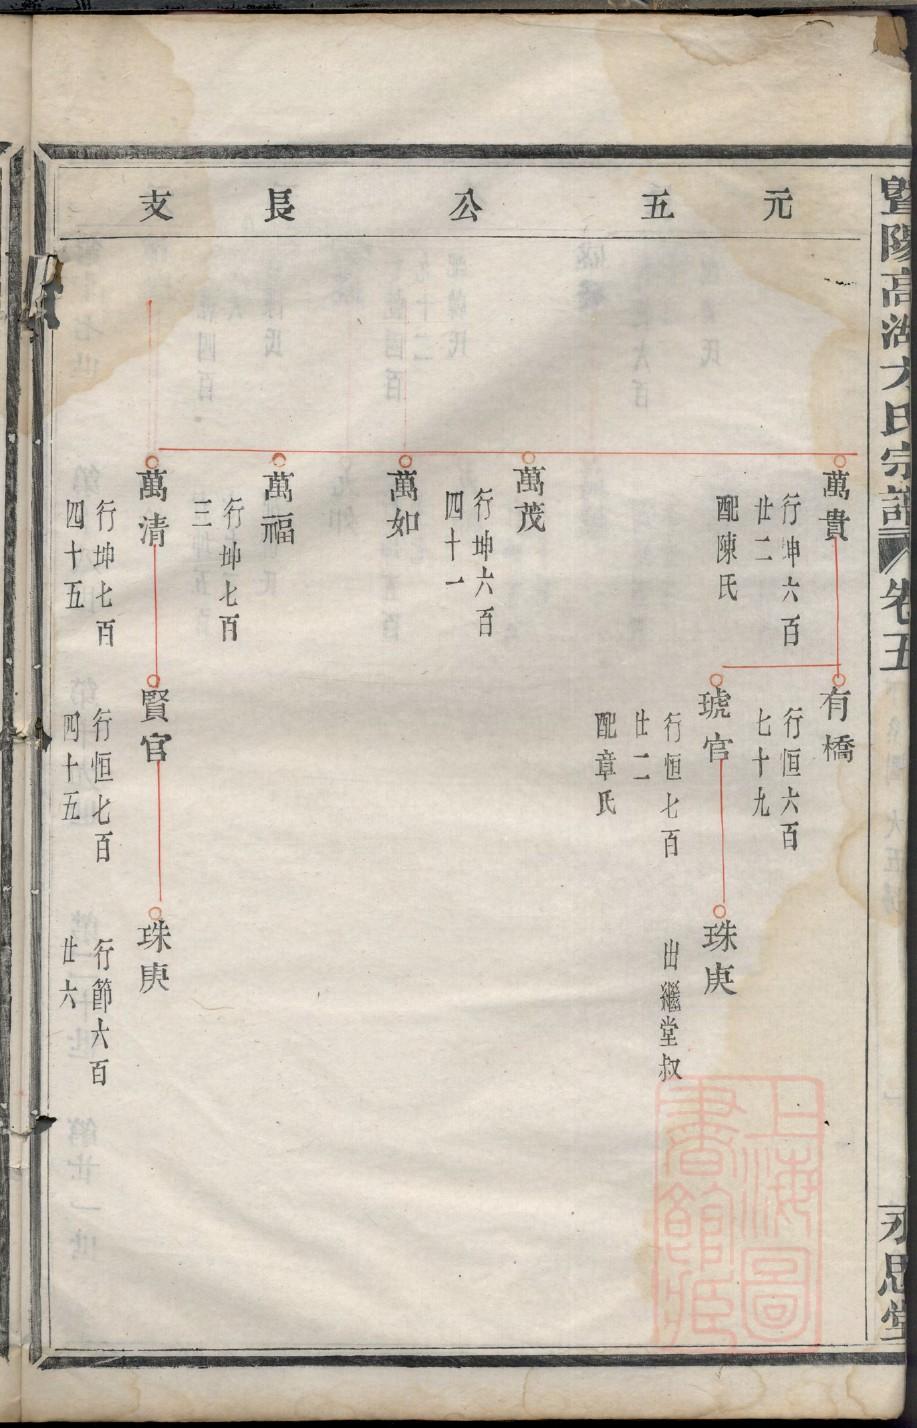 元五公長支
萬貴
行坤六百
廿二
配陳氏
萬茂
行坤六百
四十一
萬如
萬福
行坤七百
三
萬清
行坤七百
四十五
有橋
行恒六百
七十九
琥官
行恒七百
廿二
配章氏
賢官
行恒七百
四十五
珠庚
出繼堂叔
珠庚
行節六百
廿六
暨陽高湖方氏宗譜
卷五
永思堂
上海圖
書館藏